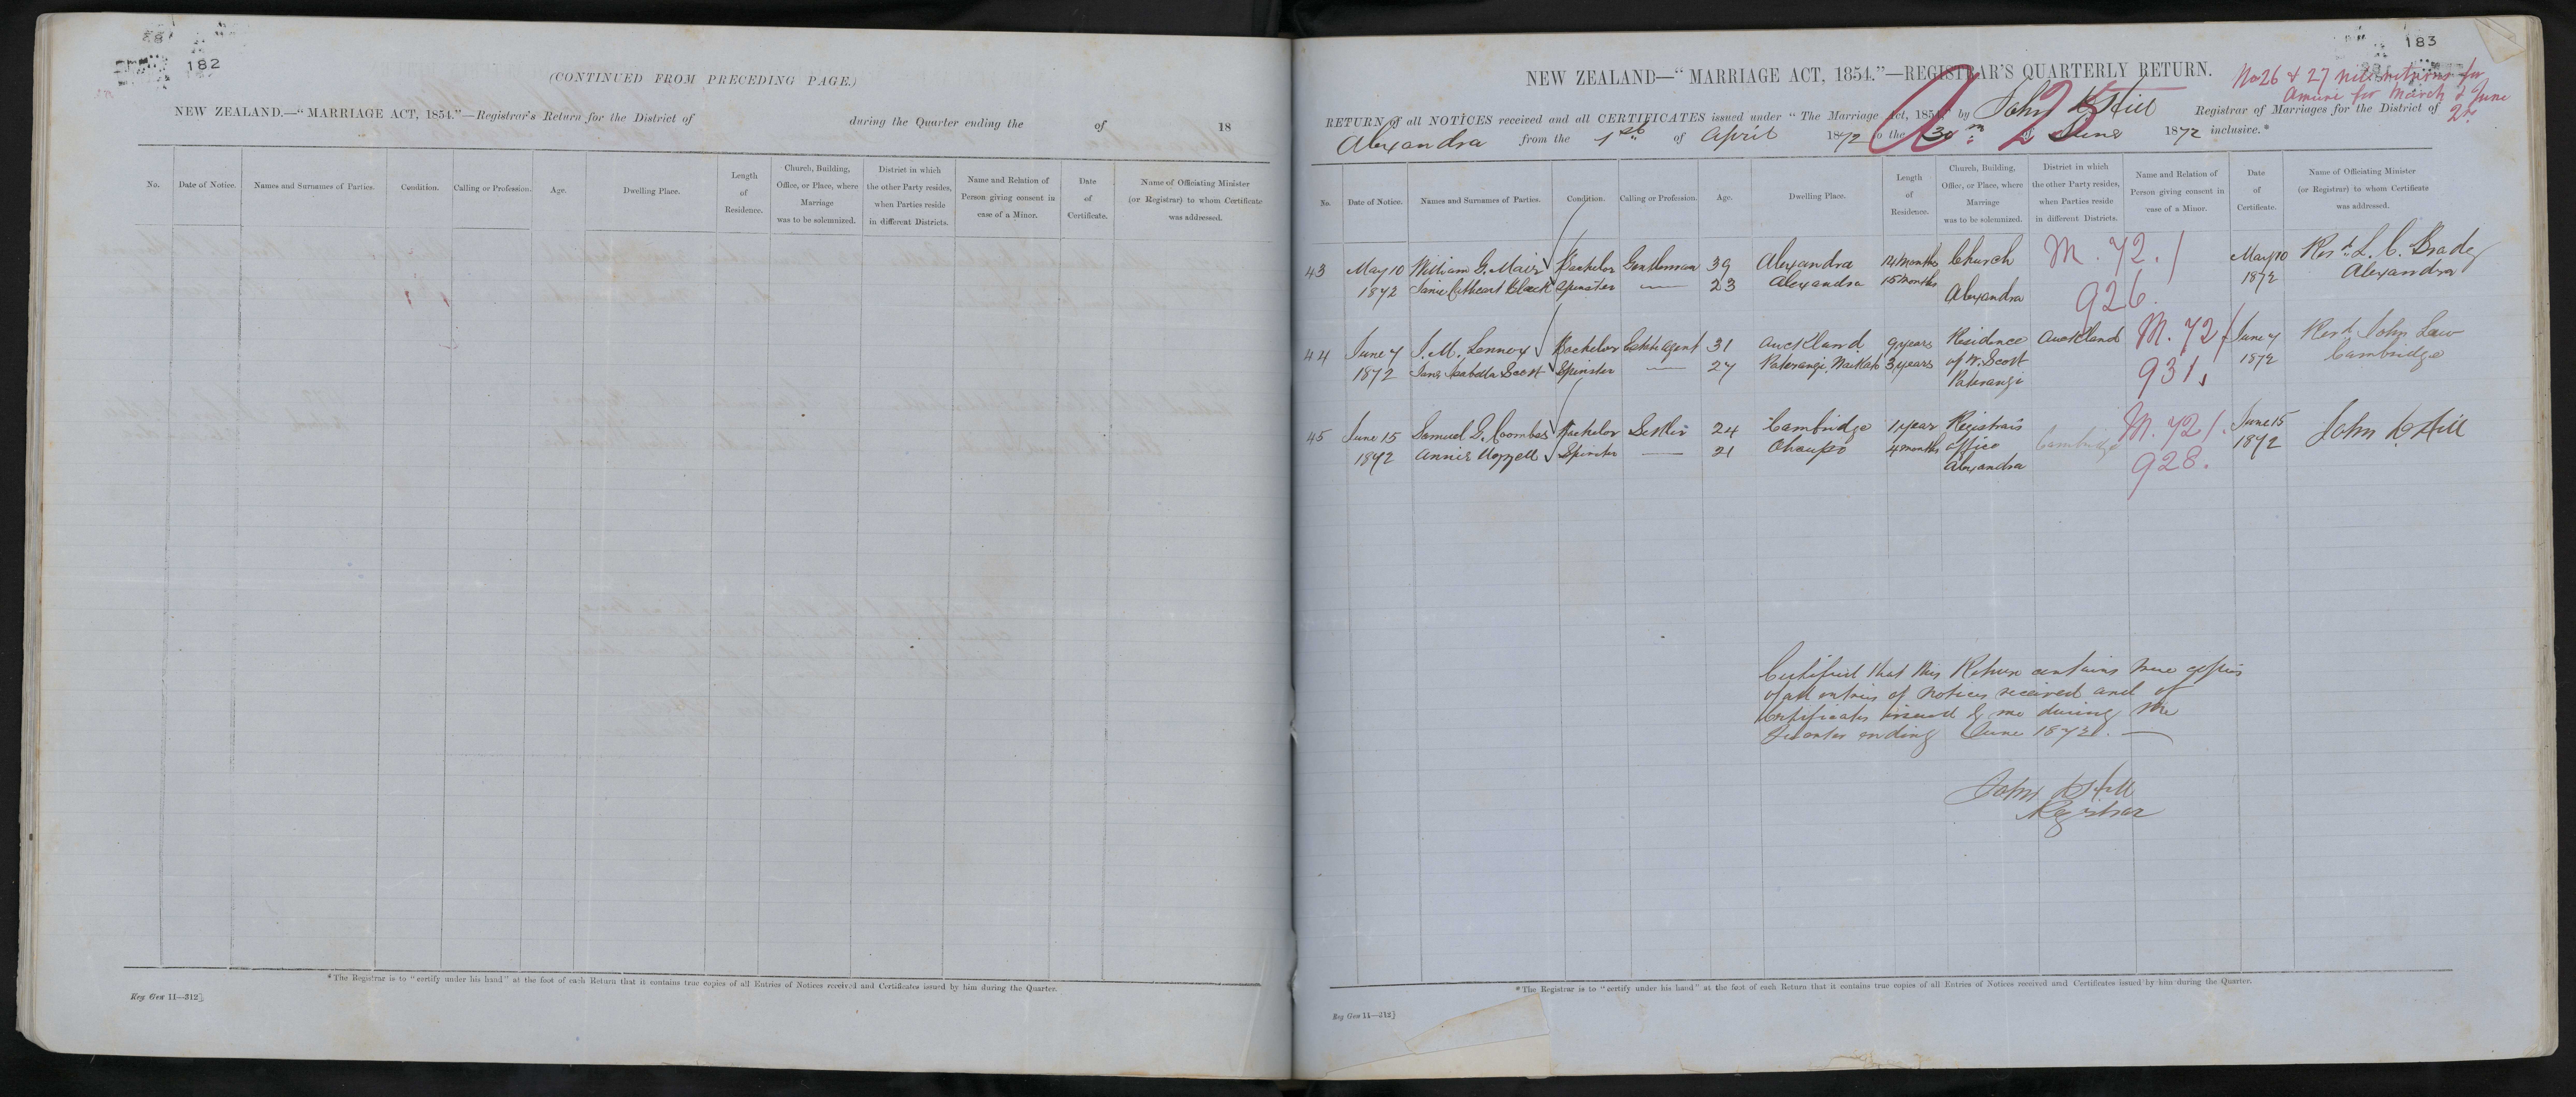 182
(CONTINUED FROM PRECEDING PAGE.)
NEW ZEALAND.—"MARRIAGE ACT, 1854."—Registrar's Return for the District of during the Quarter ending the of 18
No. Date of Notice. Names and Surnames of Parties. Condition. Calling or Profession. Age. Dwelling Place. Length of Residence. Church, Building, Office, or Place, where Marriage was to be solemnized. District in which the other Party resides, when Parties reside in different Districts. Name and Relation of Person giving consent in case of a Minor. Date of Certificate. Name of Officiating Minister (or Registrar) to whom Certificate was addressed.
*The Registrar is to "certify under his hand" at the foot of each Return that it contains true copies of all Entries of Notices received and Certificates issued by him during the Quarter.
Reg Gen 11—312}
183
NEW ZEALAND—"MARRIAGE ACT, 1854."—REGISTRAR'S QUARTERLY RETURN.
No 26 & 27 nil returns for
Amuri for March & June
RETURN of all NOTICES received and all CERTIFICATES issued under "The Marriage Act, 1854," by John Hill Registrar of Marriages for the District of
Alexandra from the 1st of April 1872 to the 30th of June 1872 inclusive.*
No. Date of Notice. Names and Surnames of Parties. Condition. Calling or Profession. Age. Dwelling Place. Length of Residence. Church, Building, Office, or Place, where Marriage was to be solemnized. District in which the other Party resides, when Parties reside in different Districts. Name and Relation of Person giving consent in case of a Minor. Date of Certificate. Name of Officiating Minister (or Registrar) to whom Certificate was addressed.
43 May 10 William G. Mair Bachelor Gentleman 39 Alexandra 14 Months Church M. 72./ May 10 Revd. L. C. Brady
1872 Janie Cathcart Black Spinster — 23 Alexandra 15 Months Alexandra 926. 1872 Alexandra
44 June 7 J. M. Lennox Bachelor Estate Agent 31 Auckland 9 years Residence Auckland M. 72/ June 7 Revd. John Law
1872 Jane Isabella Scott Spinster — 27 Paterangi, Waikato 3 years of W. Scott 931. 1872 Cambridge
Paterangi
45 June 15 Samuel G. Coombes Bachelor Settler 24 Cambridge 1 year Registrar's Cambridge M. 72/. June 15 John Hill
1872 Annie Uozzell Spinster — 21 Ohaupo 4 months office 928. 1872
Alexandra
Certified that this Return contains true copies
of all entries of Notices received and of
Certificates issued by me during the
Quarter ending June 1872. —
John Hill
Registrar
*The Registrar is to "certify under his hand" at the foot of each Return that it contains true copies of all Entries of Notices received and Certificates issued by him during the Quarter.
Reg Gen 11—312}